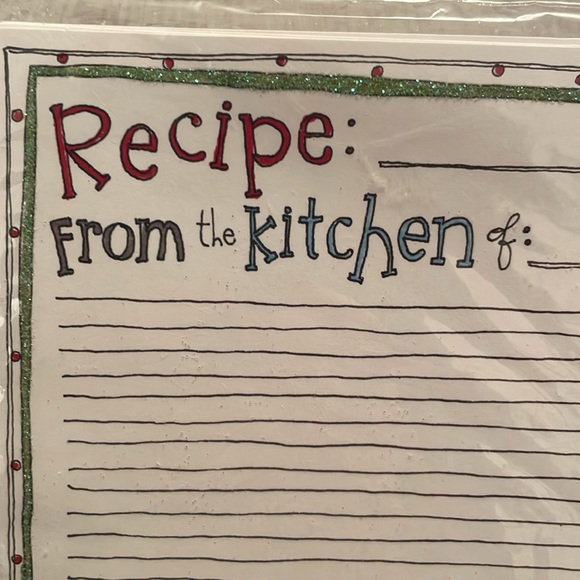 Recipe:
From the kitchen of: